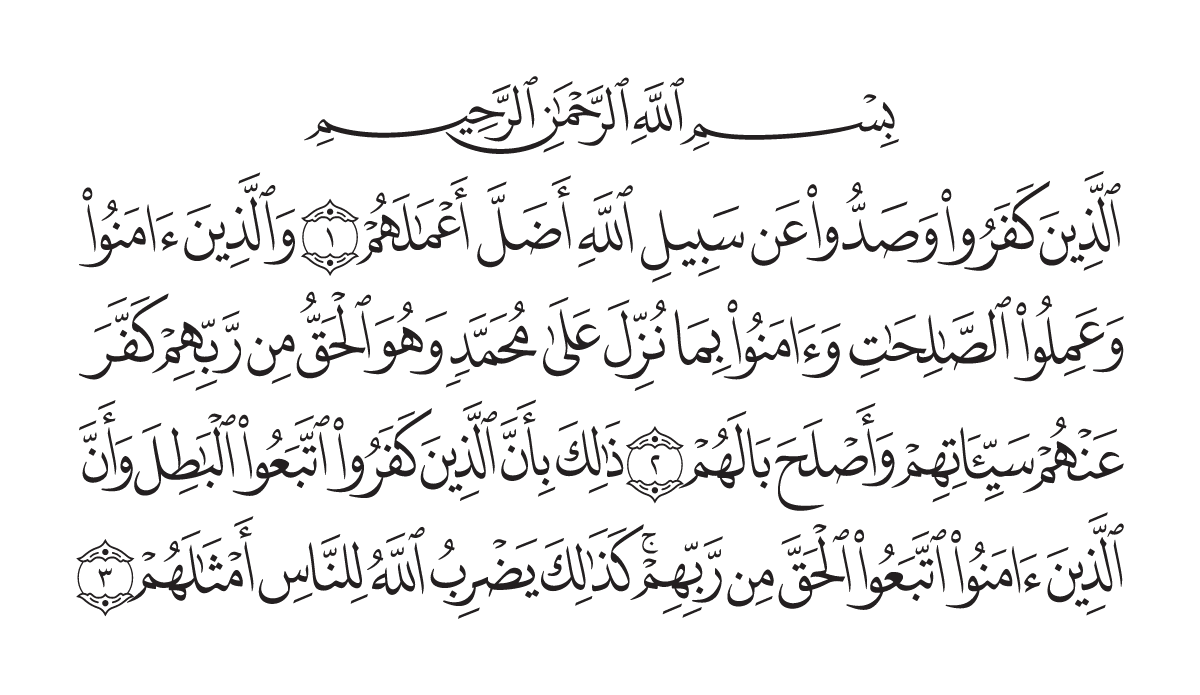 بِسْمِ ٱللَّهِ ٱلرَّحْمَٰنِ ٱلرَّحِيمِ
ٱلَّذِينَ كَفَرُوا۟ وَصَدُّوا۟ عَن سَبِيلِ ٱللَّهِ أَضَلَّ أَعْمَٰلَهُمْ ١ وَٱلَّذِينَ ءَامَنُوا۟
وَعَمِلُوا۟ ٱلصَّٰلِحَٰتِ وَءَامَنُوا۟ بِمَا نُزِّلَ عَلَىٰ مُحَمَّدٍ وَهُوَ ٱلْحَقُّ مِن رَّبِّهِمْ كَفَّرَ
عَنْهُمْ سَيِّـَٔاتِهِمْ وَأَصْلَحَ بَالَهُمْ ٢ ذَٰلِكَ بِأَنَّ ٱلَّذِينَ كَفَرُوا۟ ٱتَّبَعُوا۟ ٱلْبَٰطِلَ وَأَنَّ
ٱلَّذِينَ ءَامَنُوا۟ ٱتَّبَعُوا۟ ٱلْحَقَّ مِن رَّبِّهِمْ ۚ كَذَٰلِكَ يَضْرِبُ ٱللَّهُ لِلنَّاسِ أَمْثَٰلَهُمْ ٣